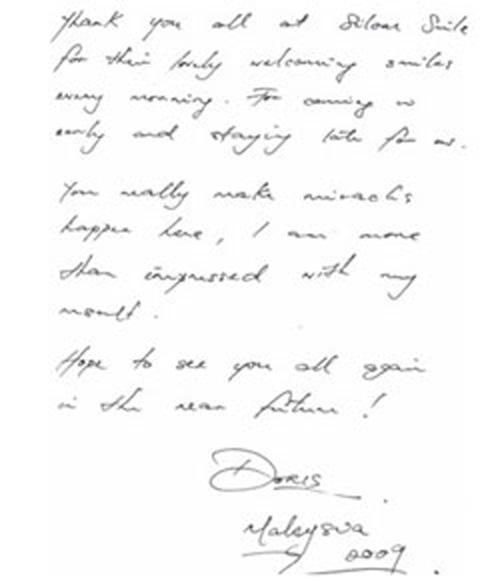 Thank you all at Silom Smile
for their lovely welcoming smiles
every morning. For coming in
early and staying late for us.
You really make miracles
happen here, I am more
than impressed with my
result.
Hope to see you all again
in the near future!
Doris.
Malaysia
2009.